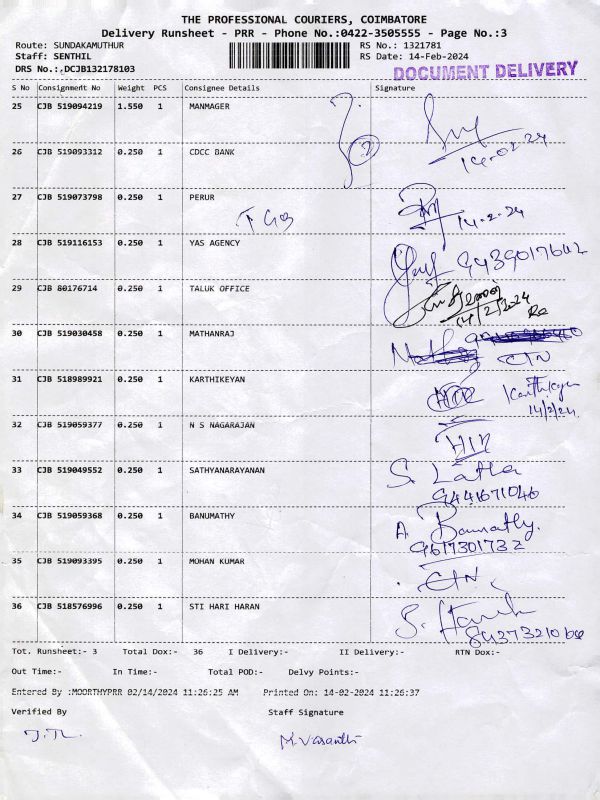 THE PROFESSIONAL COURIERS, COIMBATORE
Delivery Runsheet - PRR - Phone No.:0422-3505555 - Page No.:3
Route: SUNDAKAMUTHUR RS No.: 1321781
Staff: SENTHIL RS Date: 14-Feb-2024
DRS No.:.DCJB132178103 DOCUMENT DELIVERY
S No Consignment No Weight PCS Consignee Details Signature
25 CJB 519094219 1.550 1 MANMAGER
14-02-24
26 CJB 519093312 0.250 1 CDCC BANK
27 CJB 519073798 0.250 1 PERUR
14-2-24
28 CJB 519116153 0.250 1 YAS AGENCY
29 CJB 80176714 0.250 1 TALUK OFFICE
14/2/2024
30 CJB 519030458 0.250 1 MATHANRAJ
CIN
31 CJB 518989921 0.250 1 KARTHIKEYAN Karthikeyan
14/2/24
32 CJB 519059377 0.250 1 N S NAGARAJAN
33 CJB 519049552 0.250 1 SATHYANARAYANAN S. Latha
9441671046
34 CJB 519059368 0.250 1 BANUMATHY A. Banumathy.
9617301732
35 CJB 519093395 0.250 1 MOHAN KUMAR
CIN.
36 CJB 518576996 0.250 1 STI HARI HARAN
Tot. Runsheet:- 3 Total Dox:- 36 I Delivery:- II Delivery:- RTN Dox:-
Out Time:- In Time:- Total POD:- Delvy Points:-
Entered By :MOORTHYPRR 02/14/2024 11:26:25 AM Printed On: 14-02-2024 11:26:37
Verified By Staff Signature
M. Vasanthi